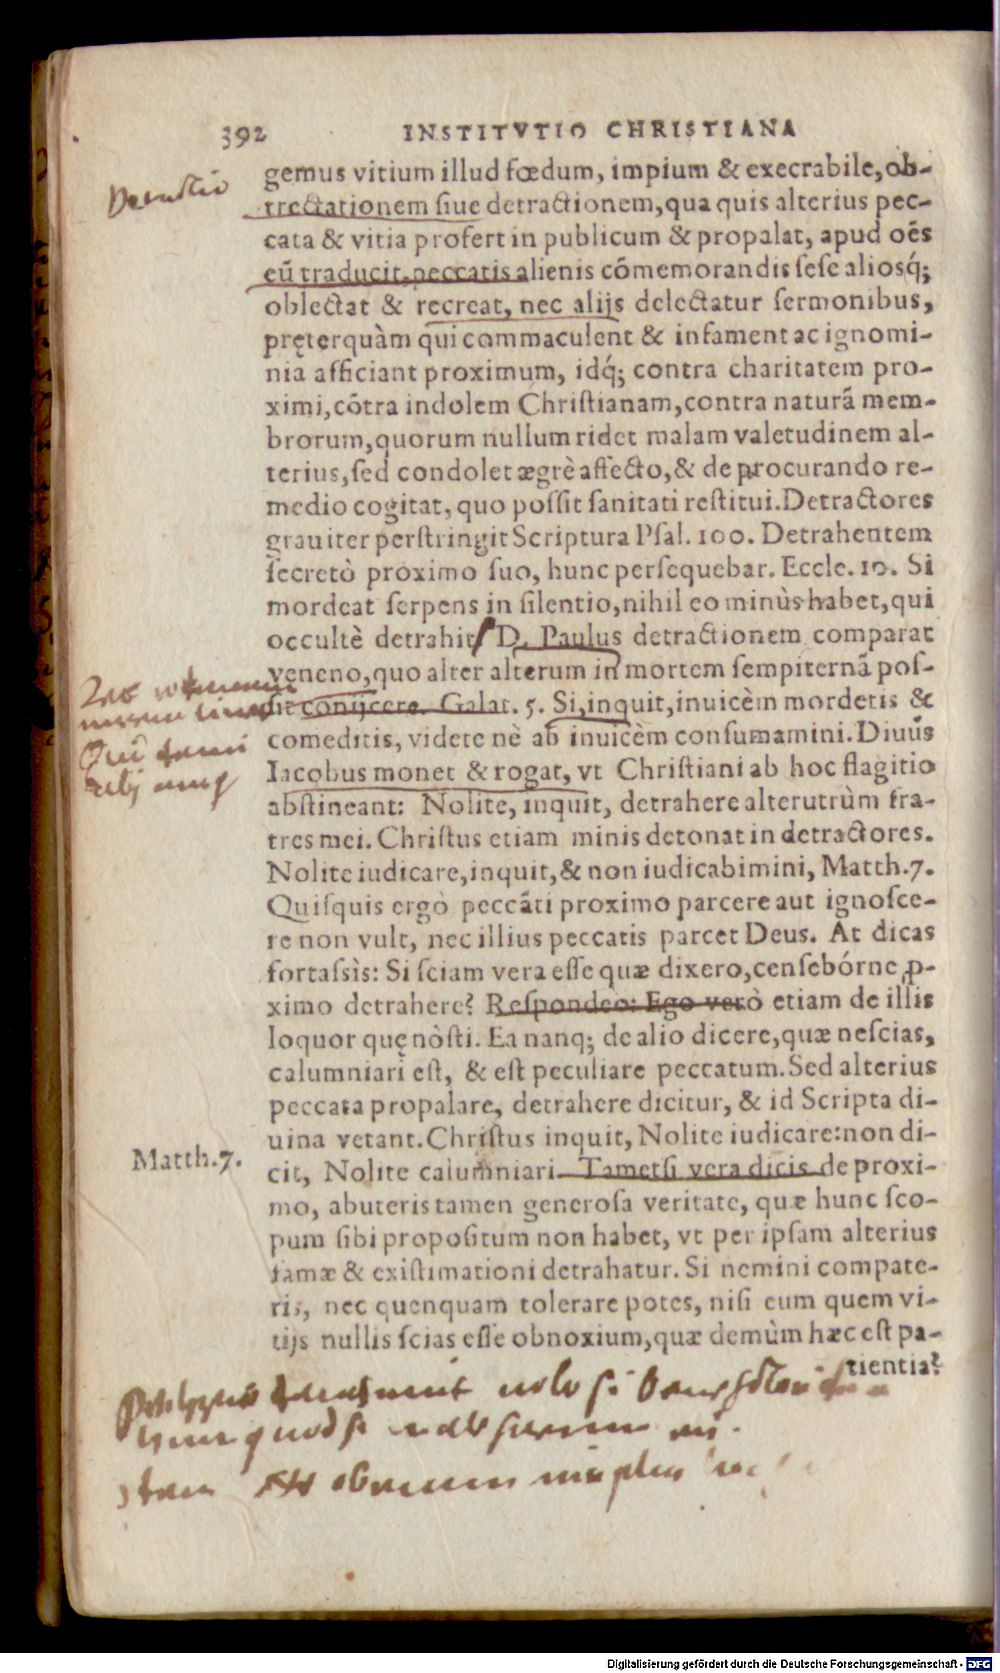 392 INSTITVTIO CHRISTIANA
gemus vitium illud fœdum, impium & execrabile, ob-
trectationem ſiue detractionem, qua quis alterius pec-
cata & vitia profert in publicum & propalat, apud oẽs
eũ traducit, peccatis alienis cõmemorandis ſeſe alioſq́;
oblectat & recreat, nec alijs delectatur ſermonibus,
pręterquàm qui commaculent & infament ac ignomi-
nia afficiant proximum, idq́; contra charitatem pro-
ximi, cõtra indolem Chriſtianam, contra naturã mem-
brorum, quorum nullum ridet malam valetudinem al-
terius, ſed condolet ægrè affecto, & de procurando re-
medio cogitat, quo poſſit ſanitati reſtitui. Detractores
grauiter perſtringit Scriptura Pſal. 100. Detrahentem
ſecretò proximo ſuo, hunc perſequebar. Eccle. 10. Si
mordeat ſerpens in ſilentio, nihil eo minùs habet, qui
occultè detrahit. D. Paulus detractionem comparat
veneno, quo alter alterum in mortem ſempiternã poſ-
ſit conijcere. Galat. 5. Si, inquit, inuicèm mordetis &
comeditis, videte nè ab inuicèm conſumamini. Diuus
Iacobus monet & rogat, vt Chriſtiani ab hoc flagitio
abſtineant: Nolite, inquit, detrahere alterutrùm fra-
tres mei. Chriſtus etiam minis detonat in detractores.
Nolite iudicare, inquit, & non iudicabimini, Matth. 7.
Quiſquis ergò peccãti proximo parcere aut ignoſce-
re non vult, nec illius peccatis parcet Deus. At dicas
fortaſsìs: Si ſciam vera eſſe quæ dixero, cenſebórne p-
ximo detrahere? Reſpondeo: Ego verò etiam de illis
loquor quę nòſti. Ea nanq; de alio dicere, quæ neſcias,
calumniari eſt, & eſt peculiare peccatum. Sed alterius
peccata propalare, detrahere dicitur, & id Scripta di-
uina vetant. Chriſtus inquit, Nolite iudicare: non di-
Matth. 7.
cit, Nolite calumniari. Tametſi vera dicis de proxi-
mo, abuteris tamen generoſa veritate, quæ hunc ſco-
pum ſibi propoſitum non habet, vt per ipſam alterius
famæ & exiſtimationi detrahatur. Si nemini compate-
ris, nec quenquam tolerare potes, niſi eum quem vi-
tijs nullis ſcias eſſe obnoxium, quæ demùm hæc eſt pa-
tientia?
Digitalisierung gefördert durch die Deutsche Forschungsgemeinschaft - DFG